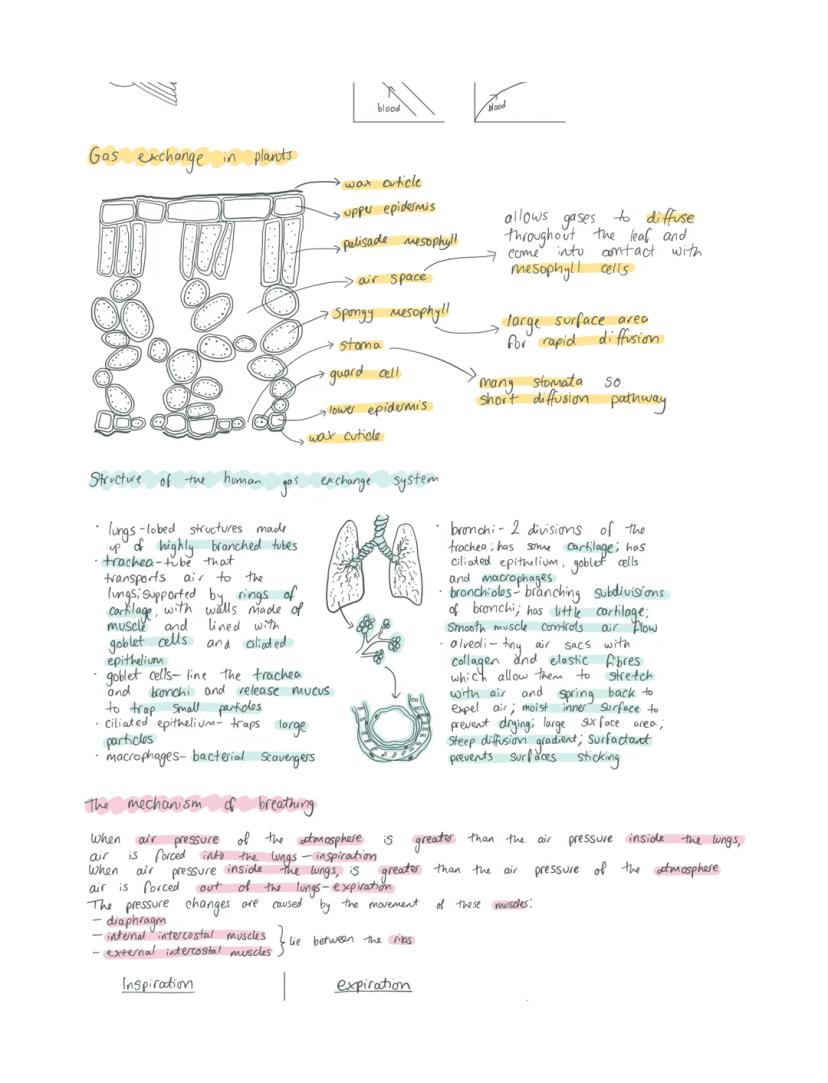 blood
blood
Gas exchange in plants
wax cuticle
upper epidermis
palisade mesophyll
air space
spongy mesophyll
stoma
guard cell
lower epidermis
wax cuticle
allows gases to diffuse
throughout the leaf and
come into contact with
mesophyll cells
large surface area
for rapid diffusion
many stomata so
short diffusion pathway
Structure of the human gas exchange system
· lungs - lobed structures made
up of highly branched tubes
· trachea - tube that
transports air to the
lungs; supported by rings of
cartilage, with walls made of
muscle and lined with
goblet cells and ciliated
epithelium
· goblet cells - line the trachea
and bronchi and release mucus
to trap small particles
· ciliated epithelium - traps large
particles
· macrophages - bacterial scavengers
· bronchi - 2 divisions of the
trachea; has some cartilage; has
ciliated epithelium, goblet cells
and macrophages
· bronchioles - branching subdivisions
of bronchi; has little cartilage;
smooth muscle controls air flow
· alveoli - tiny air sacs with
collagen and elastic fibres
which allow them to stretch
with air and spring back to
expel air; moist inner surface to
prevent drying; large surface area;
steep diffusion gradient; surfactant
prevents surfaces sticking
The mechanism of breathing
When air pressure of the atmosphere is greater than the air pressure inside the lungs,
air is forced into the lungs - inspiration
When air pressure inside the lungs, is greater than the air pressure of the atmosphere
air is forced out of the lungs - expiration
The pressure changes are caused by the movement of these muscles:
- diaphragm
- internal intercostal muscles
- external intercostal muscles } lie between the ribs
Inspiration | expiration